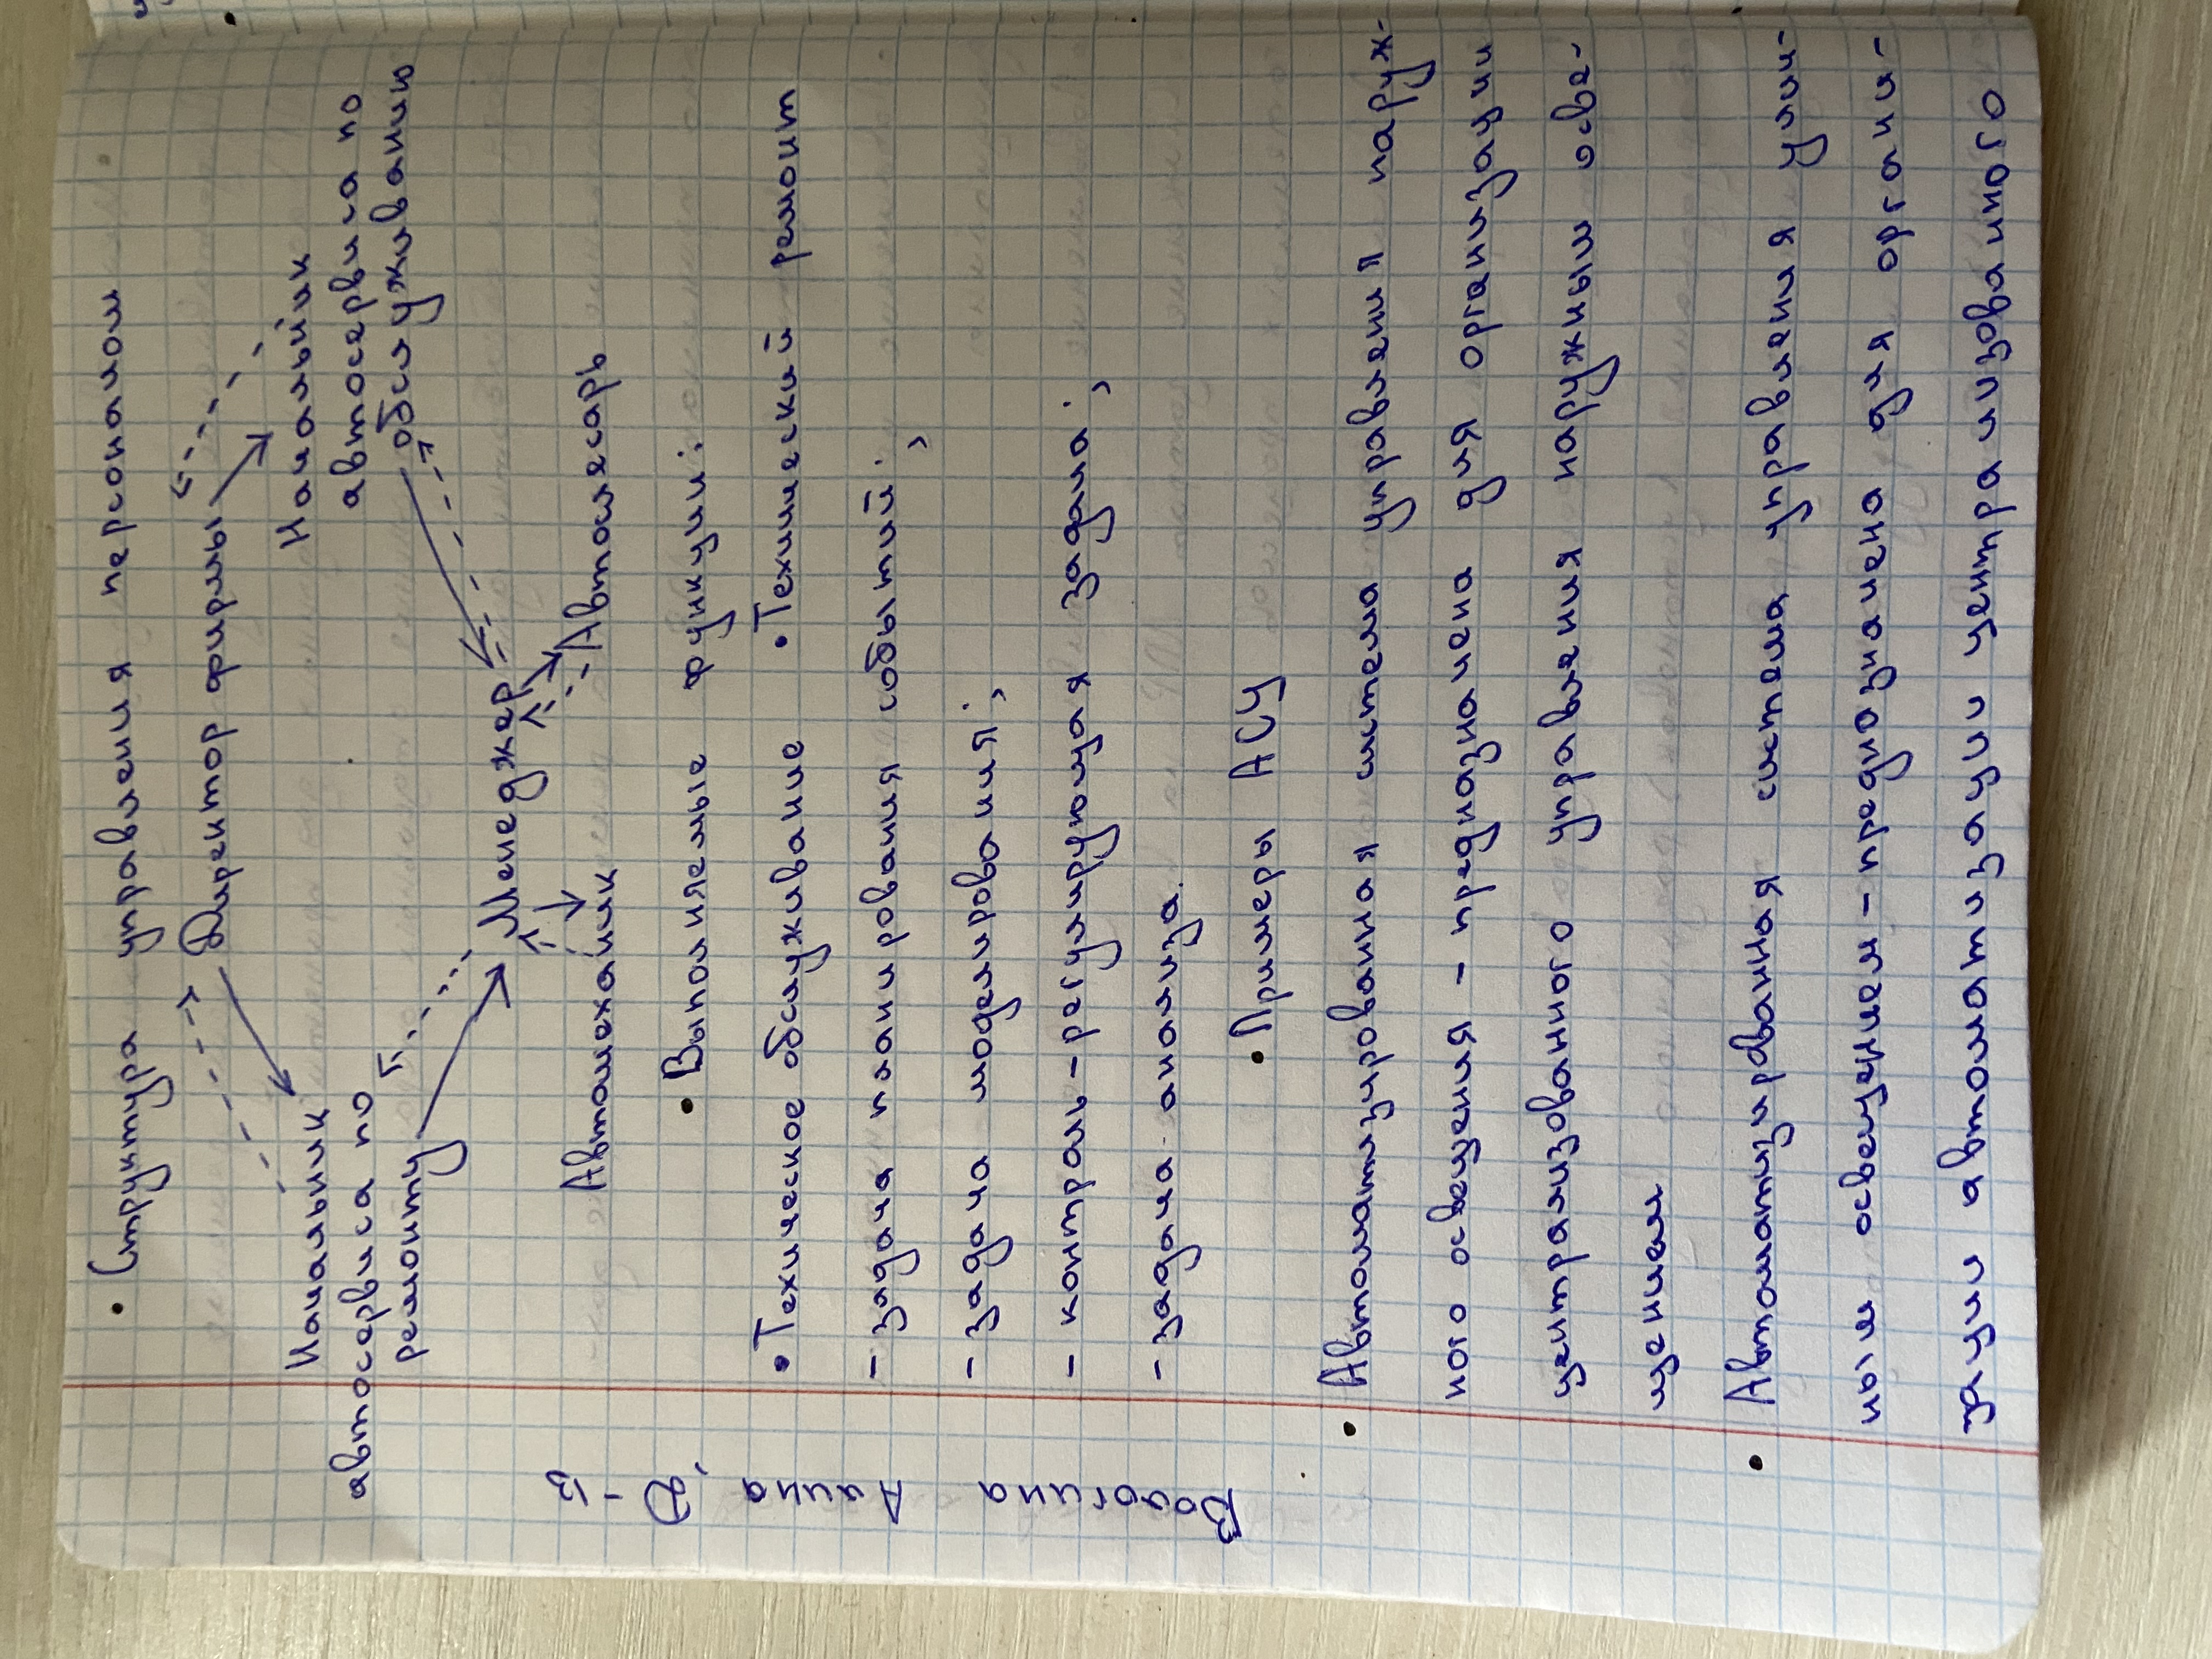 • Структура управления персоналом
Директор фирмы
Начальник
автосервиса по
ремонту
Начальник
автосервиса по
обслуживанию
Менеджер
Автомеханик
Автослесарь
• Выполняемые функции:
• Техническое обслуживание
• Технический ремонт
- задача планирования событий;
- задача моделирования;
- контроль-регулирующая задача;
- задача анализа.
• Примеры АСУ
• Автоматизированная система управления наруж-
ного освещения - предназначена для организации
централизованного управления наружным осве-
щением
• Автоматизированная система управления улич-
ным освещением - предназначена для органи-
зации автоматизации централизованного
Алина, Д-13